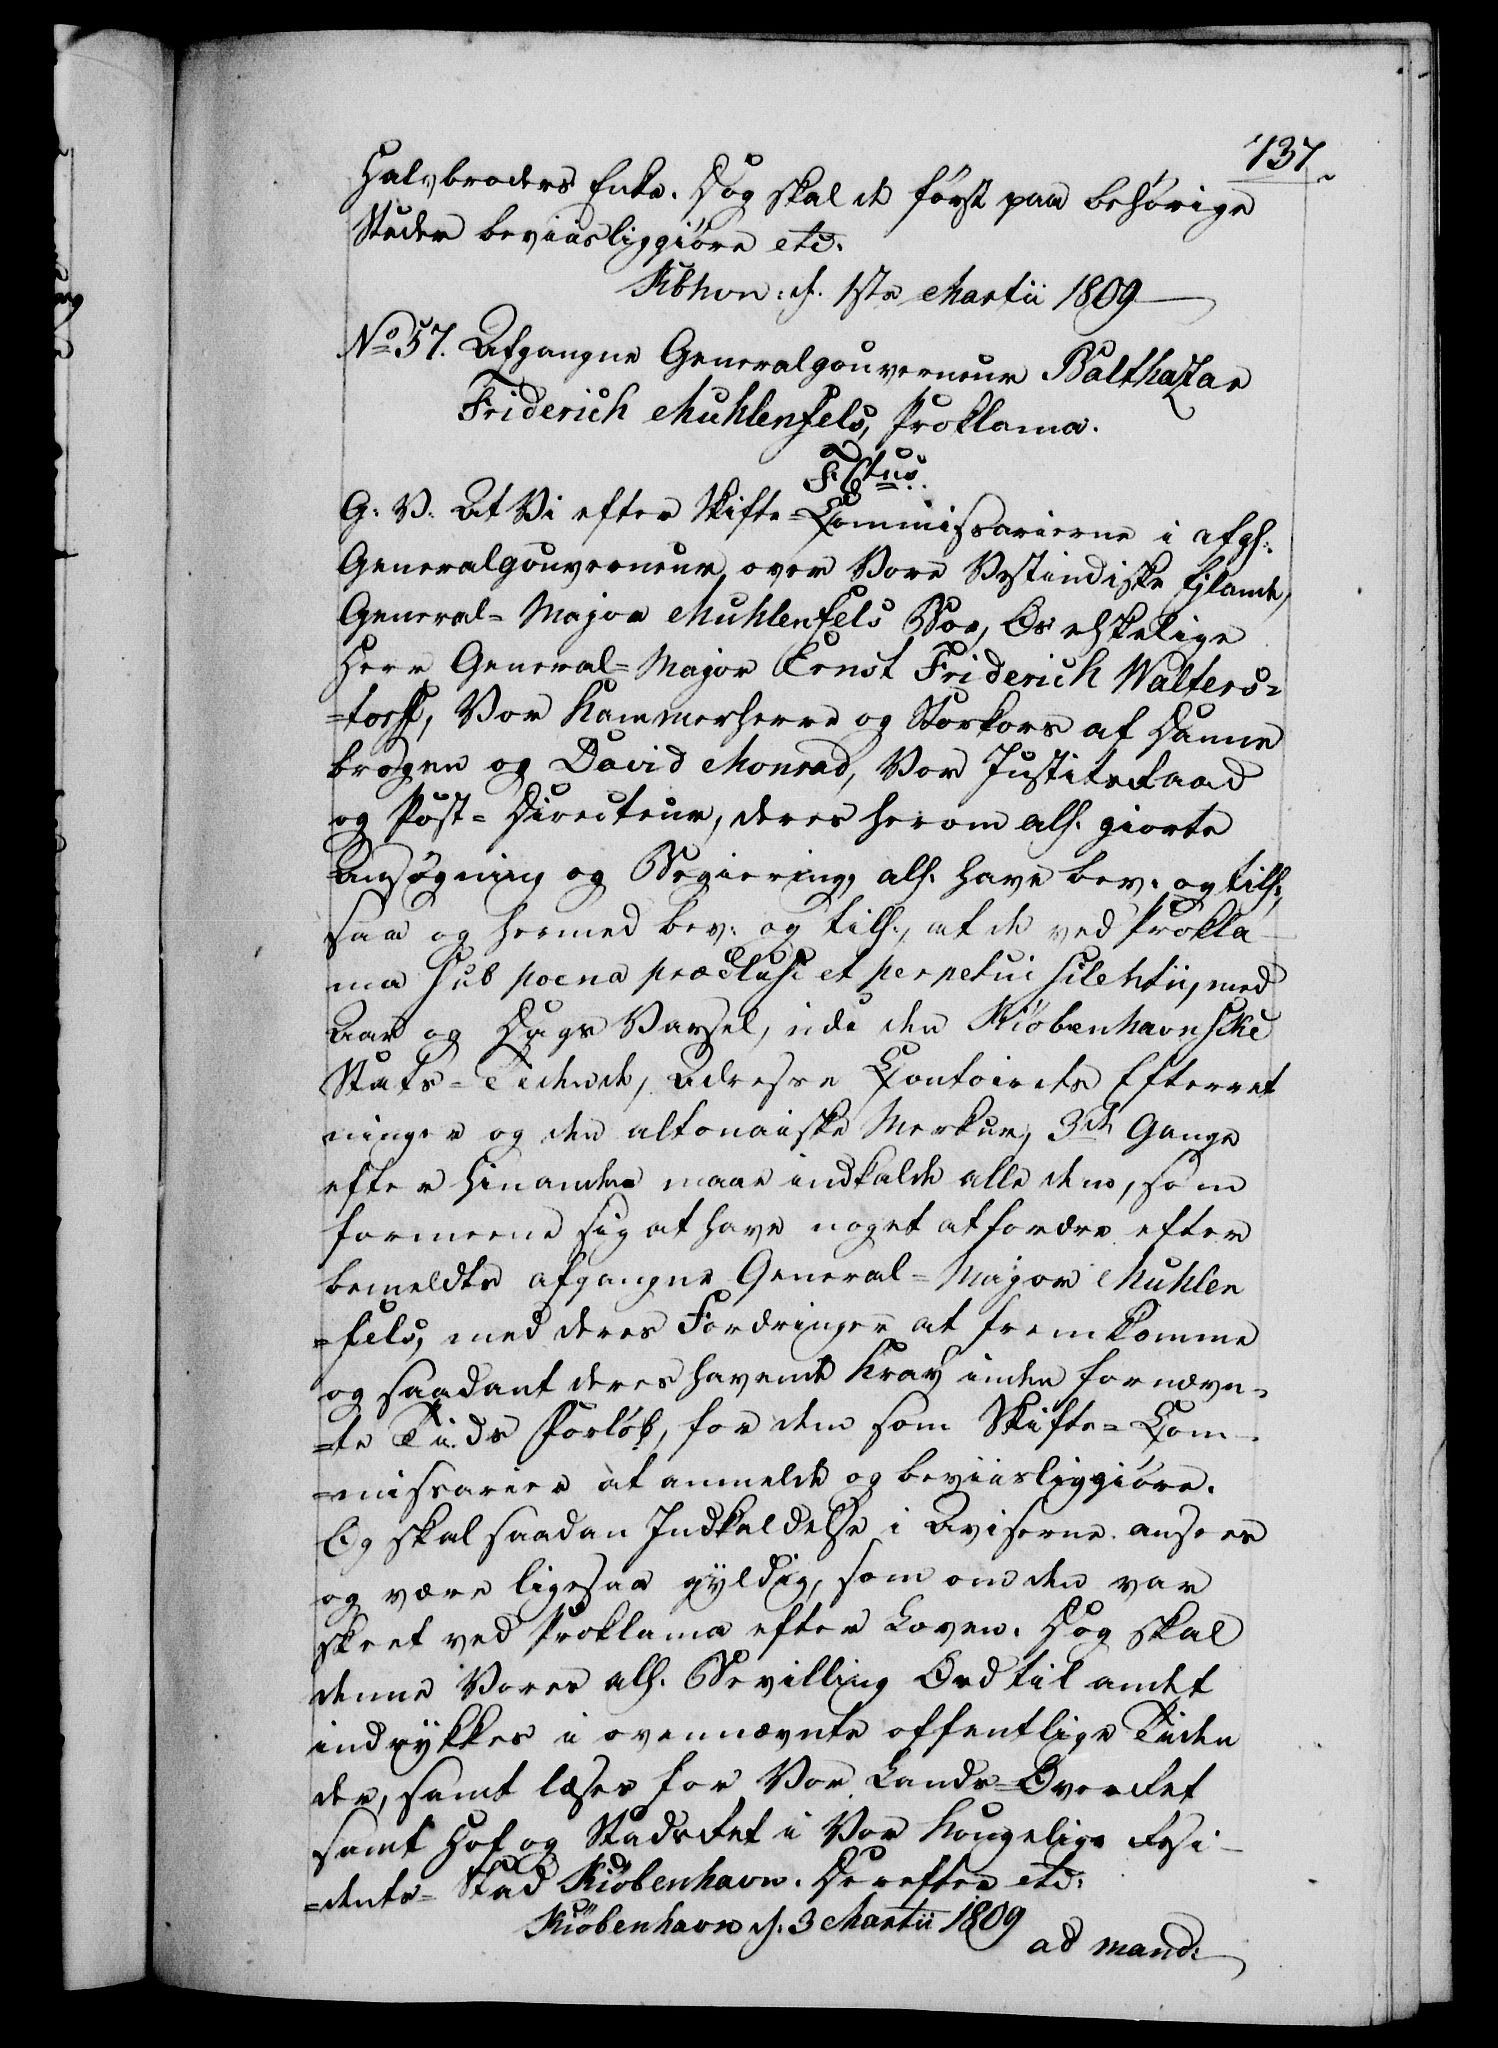 737
Halvbroders Enke. Dog skal de först paa behörige
Steder beviisliggiöre etc.
Kbhvn: d. 1ste Martii 1809
No 57. Afgangne Generalgouverneur Balthazar
Friderich Muhlenfels, Proklama.
F 6tus.
G. V. At Vi efter Skifte=Commissarierne i afg:
Generalgouverneur over Vore Vestindiske Eÿlande,
General=Major Muhlenfels Boe, Os elskelige
Herr General=Major Ernst Friderich Walters=
=torff, Vor Kammerherre og Storkors af Danne
brogen og David Monrad, Vor Justitsraad
og Post=Directeur, deres herom all. giorte
Ansøgning og Begiering, all. have bev: og till:,
saa og hermed bev: og till:, at de ved Prokla
ma sub poena præclusi et perpetui silentii, med
Aar og Dags Varsel, udi den Kiöbenhavnske
Stats=Tidende, Adresse Contoirets Efterret
ninger og den altonaiske Merkur, 3de Gange
efter hinanden maae indkalde alle dem, som
formeene sig at have noget at fordre efter
bemeldte afgangne General=Major Muhlen
=fels, med deres Fordringer at fremkomme
og saadant deres havende Krav inden fornævn=
=te Tids Forløb, for dem som Skifte=Com=
=missarier at anmelde og beviisliggiöre.
Og skal saadan Indkaldelse i Aviserne ansees
og være ligesaa gÿldig, som om den var
skeet ved Proklama efter Loven. Dog skal
denne Vores all. Bevilling Ord til andet
indrÿkkes i ovennævnte offentlige Tiden
der, samt læses for Vor Lands=Overret
samt Hof og Stadsret i Vor kongelige Resi=
=dents=Stad Kiöbenhavn. Derefter etc:
Kiöbenhavn d: 3 Martii 1809
ad mand: